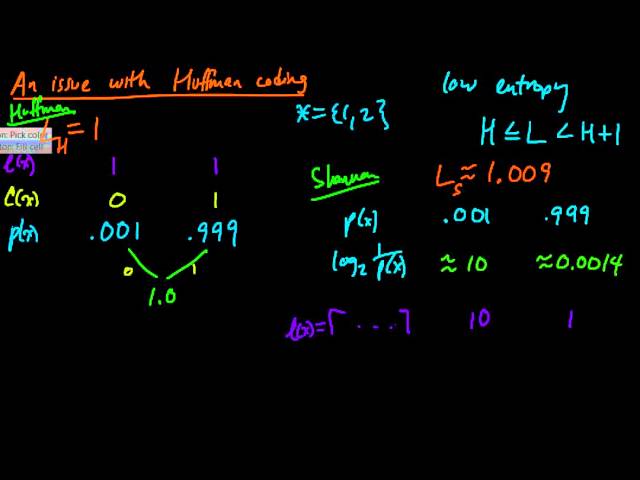 An issue with Huffman coding
Huffman
L_H = 1
on: Pick color
ton: Fill cell
l(x) 1 1
C(x) 0 1
p(x) .001 .999
0 1
1.0
X = {1,2}
low entropy
H ≤ L < H+1
Shannon
L_s ≈ 1.009
p(x) .001 .999
log₂ 1/p(x) ≈ 10 ≈ 0.0014
l(x) = ⌈ .... ⌉ 10 1